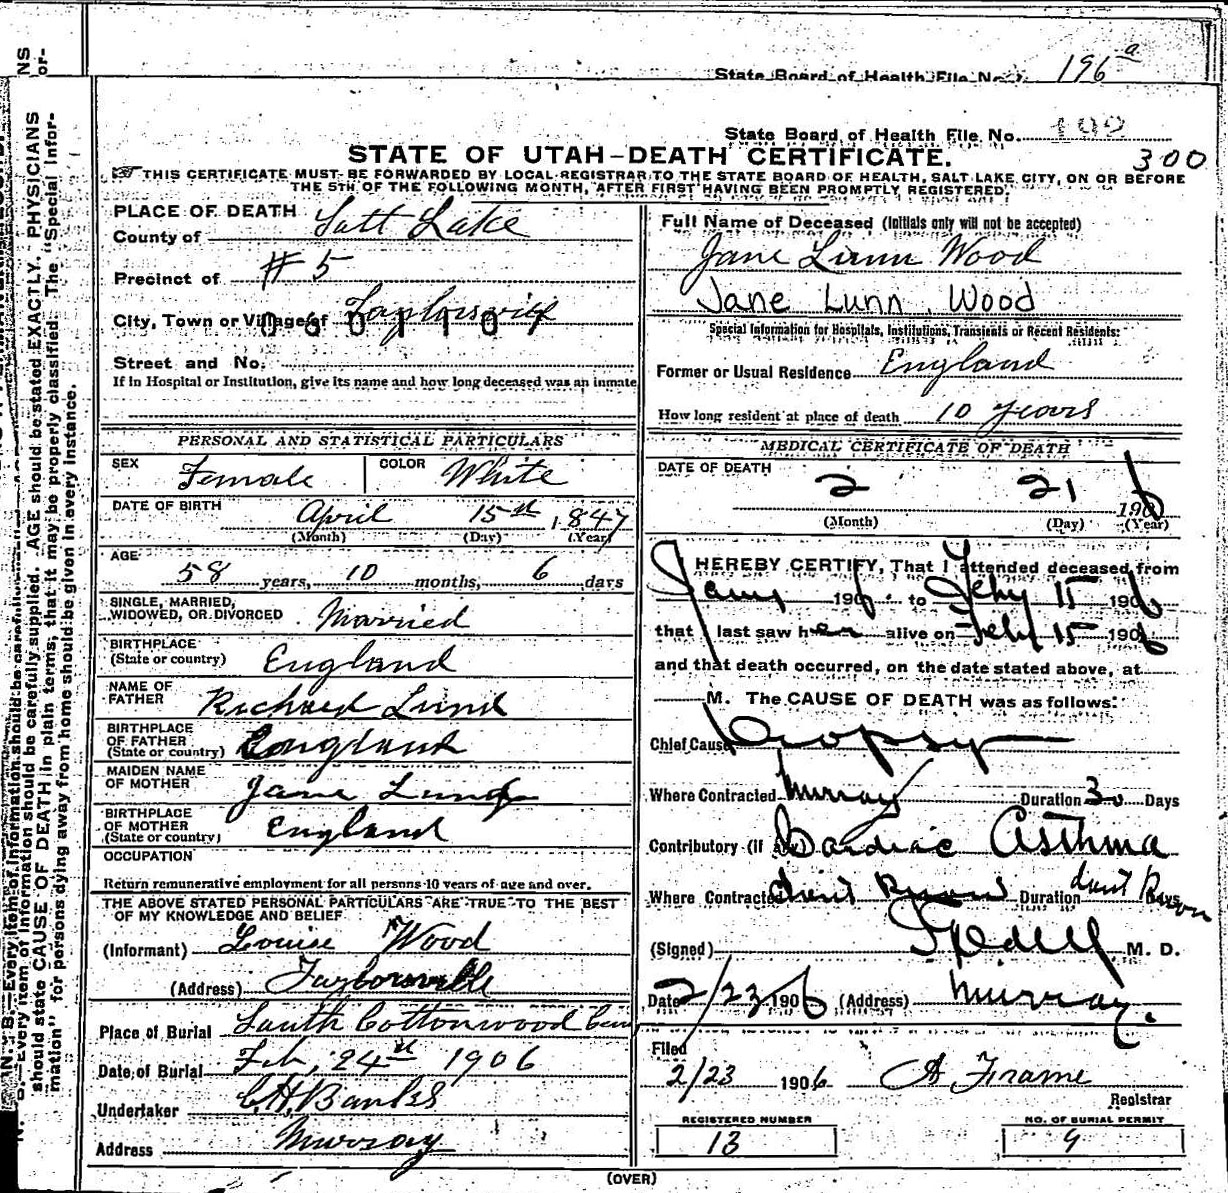 State Board of Health File No. 196a
State Board of Health File No.
300
STATE OF UTAH—DEATH CERTIFICATE.
☞ THIS CERTIFICATE MUST BE FORWARDED BY LOCAL REGISTRAR TO THE STATE BOARD OF HEALTH, SALT LAKE CITY, ON OR BEFORE
THE 5TH OF THE FOLLOWING MONTH, AFTER FIRST HAVING BEEN PROMPTLY REGISTERED.
PLACE OF DEATH
County of Salt Lake
Precinct of # 5
City, Town or Village of Taylorsville
0601107
Street and No.
If in Hospital or Institution, give its name and how long deceased was an inmate
PERSONAL AND STATISTICAL PARTICULARS
SEX Female COLOR White
DATE OF BIRTH April 15th 1847
(Month) (Day) (Year)
AGE 58 years, 10 months, 6 days
SINGLE, MARRIED,
WIDOWED, OR DIVORCED Married
BIRTHPLACE
(State or country) England
NAME OF
FATHER Richard Lund
BIRTHPLACE
OF FATHER
(State or country) England
MAIDEN NAME
OF MOTHER Jane
BIRTHPLACE
OF MOTHER
(State or country) England
OCCUPATION
Return remunerative employment for all persons 10 years of age and over.
THE ABOVE STATED PERSONAL PARTICULARS ARE TRUE TO THE BEST
OF MY KNOWLEDGE AND BELIEF
(Informant) Louise Wood
(Address) Taylorsville
Place of Burial South Cottonwood Cem
Date of Burial Feb, 24st 1906
Undertaker C.H. Banks
Address Murray
Full Name of Deceased (Initials only will not be accepted)
Jane Lunn Wood
Jane Lunn Wood
Special Information for Hospitals, Institutions, Transients or Recent Residents:
Former or Usual Residence England
How long resident at place of death 10 years
MEDICAL CERTIFICATE OF DEATH
DATE OF DEATH 2 21 1906
(Month) (Day) (Year)
I HEREBY CERTIFY, That I attended deceased from
Jany 1906 to Feby 15 1906
that I last saw her alive on Feby 15 1906
and that death occurred, on the date stated above, at
M. The CAUSE OF DEATH was as follows:
Chief Cause Dropsy
Where Contracted Murray Duration 30 Days
Contributory (if any) Cardiac Asthma
Where Contracted dont Know Duration dont Know Days
(Signed) M. D.
Date 2/23 1906 (Address) Murray.
Filed
2/23 1906 A Frame
Registrar
REGISTERED NUMBER
13
NO. OF BURIAL PERMIT
9
(OVER)
N. B.—Every item of information should be carefully supplied. AGE should be stated EXACTLY. PHYSICIANS
should state CAUSE OF DEATH in plain terms, that it may be properly classified. The "Special Infor-
mation" for persons dying away from home should be given in every instance.